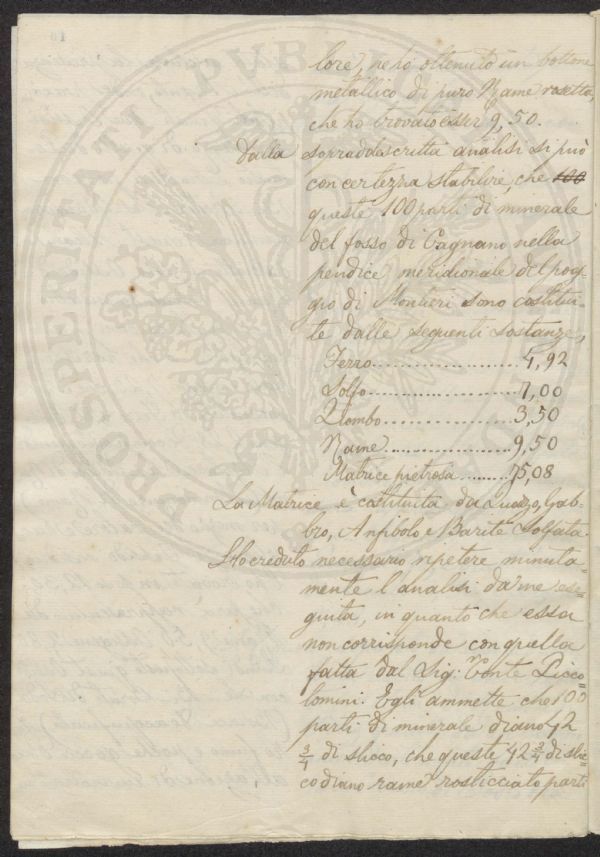 lore, ne ho ottenuto un bottone
metallico di puro Rame rosetta,
che ho trovato esser 9,50.
Dalla sopraddescritta analisi si può
con certezza stabilire, che 100
queste 100 parti di minerale
del fosso di Cagnano nella
pendice meridionale del pog-
gio di Montieri sono costitui-
te dalle seguenti sostanze,
Ferro.....................4,92
Solfo.....................7,00
Piombo..................3,50
Rame....................9,50
Matrice pietrosa.........75,08
La Matrice è costituita da Quarzo, Gab-
bro, Anfibolo e Barite Solfata.
Ho creduto necessario ripetere minuta-
mente l'analisi da me es-
guita, in quanto che essa
non corrisponde con quella
fatta dal Sig: Conte Picco=
lomini. Egli ammette che 100
parti di minerale diano 42
3/4 di slicco, che queste 42 3/4 di slic=
co diano rame rosticciato parti
PROSPERITATI PVBLICAE